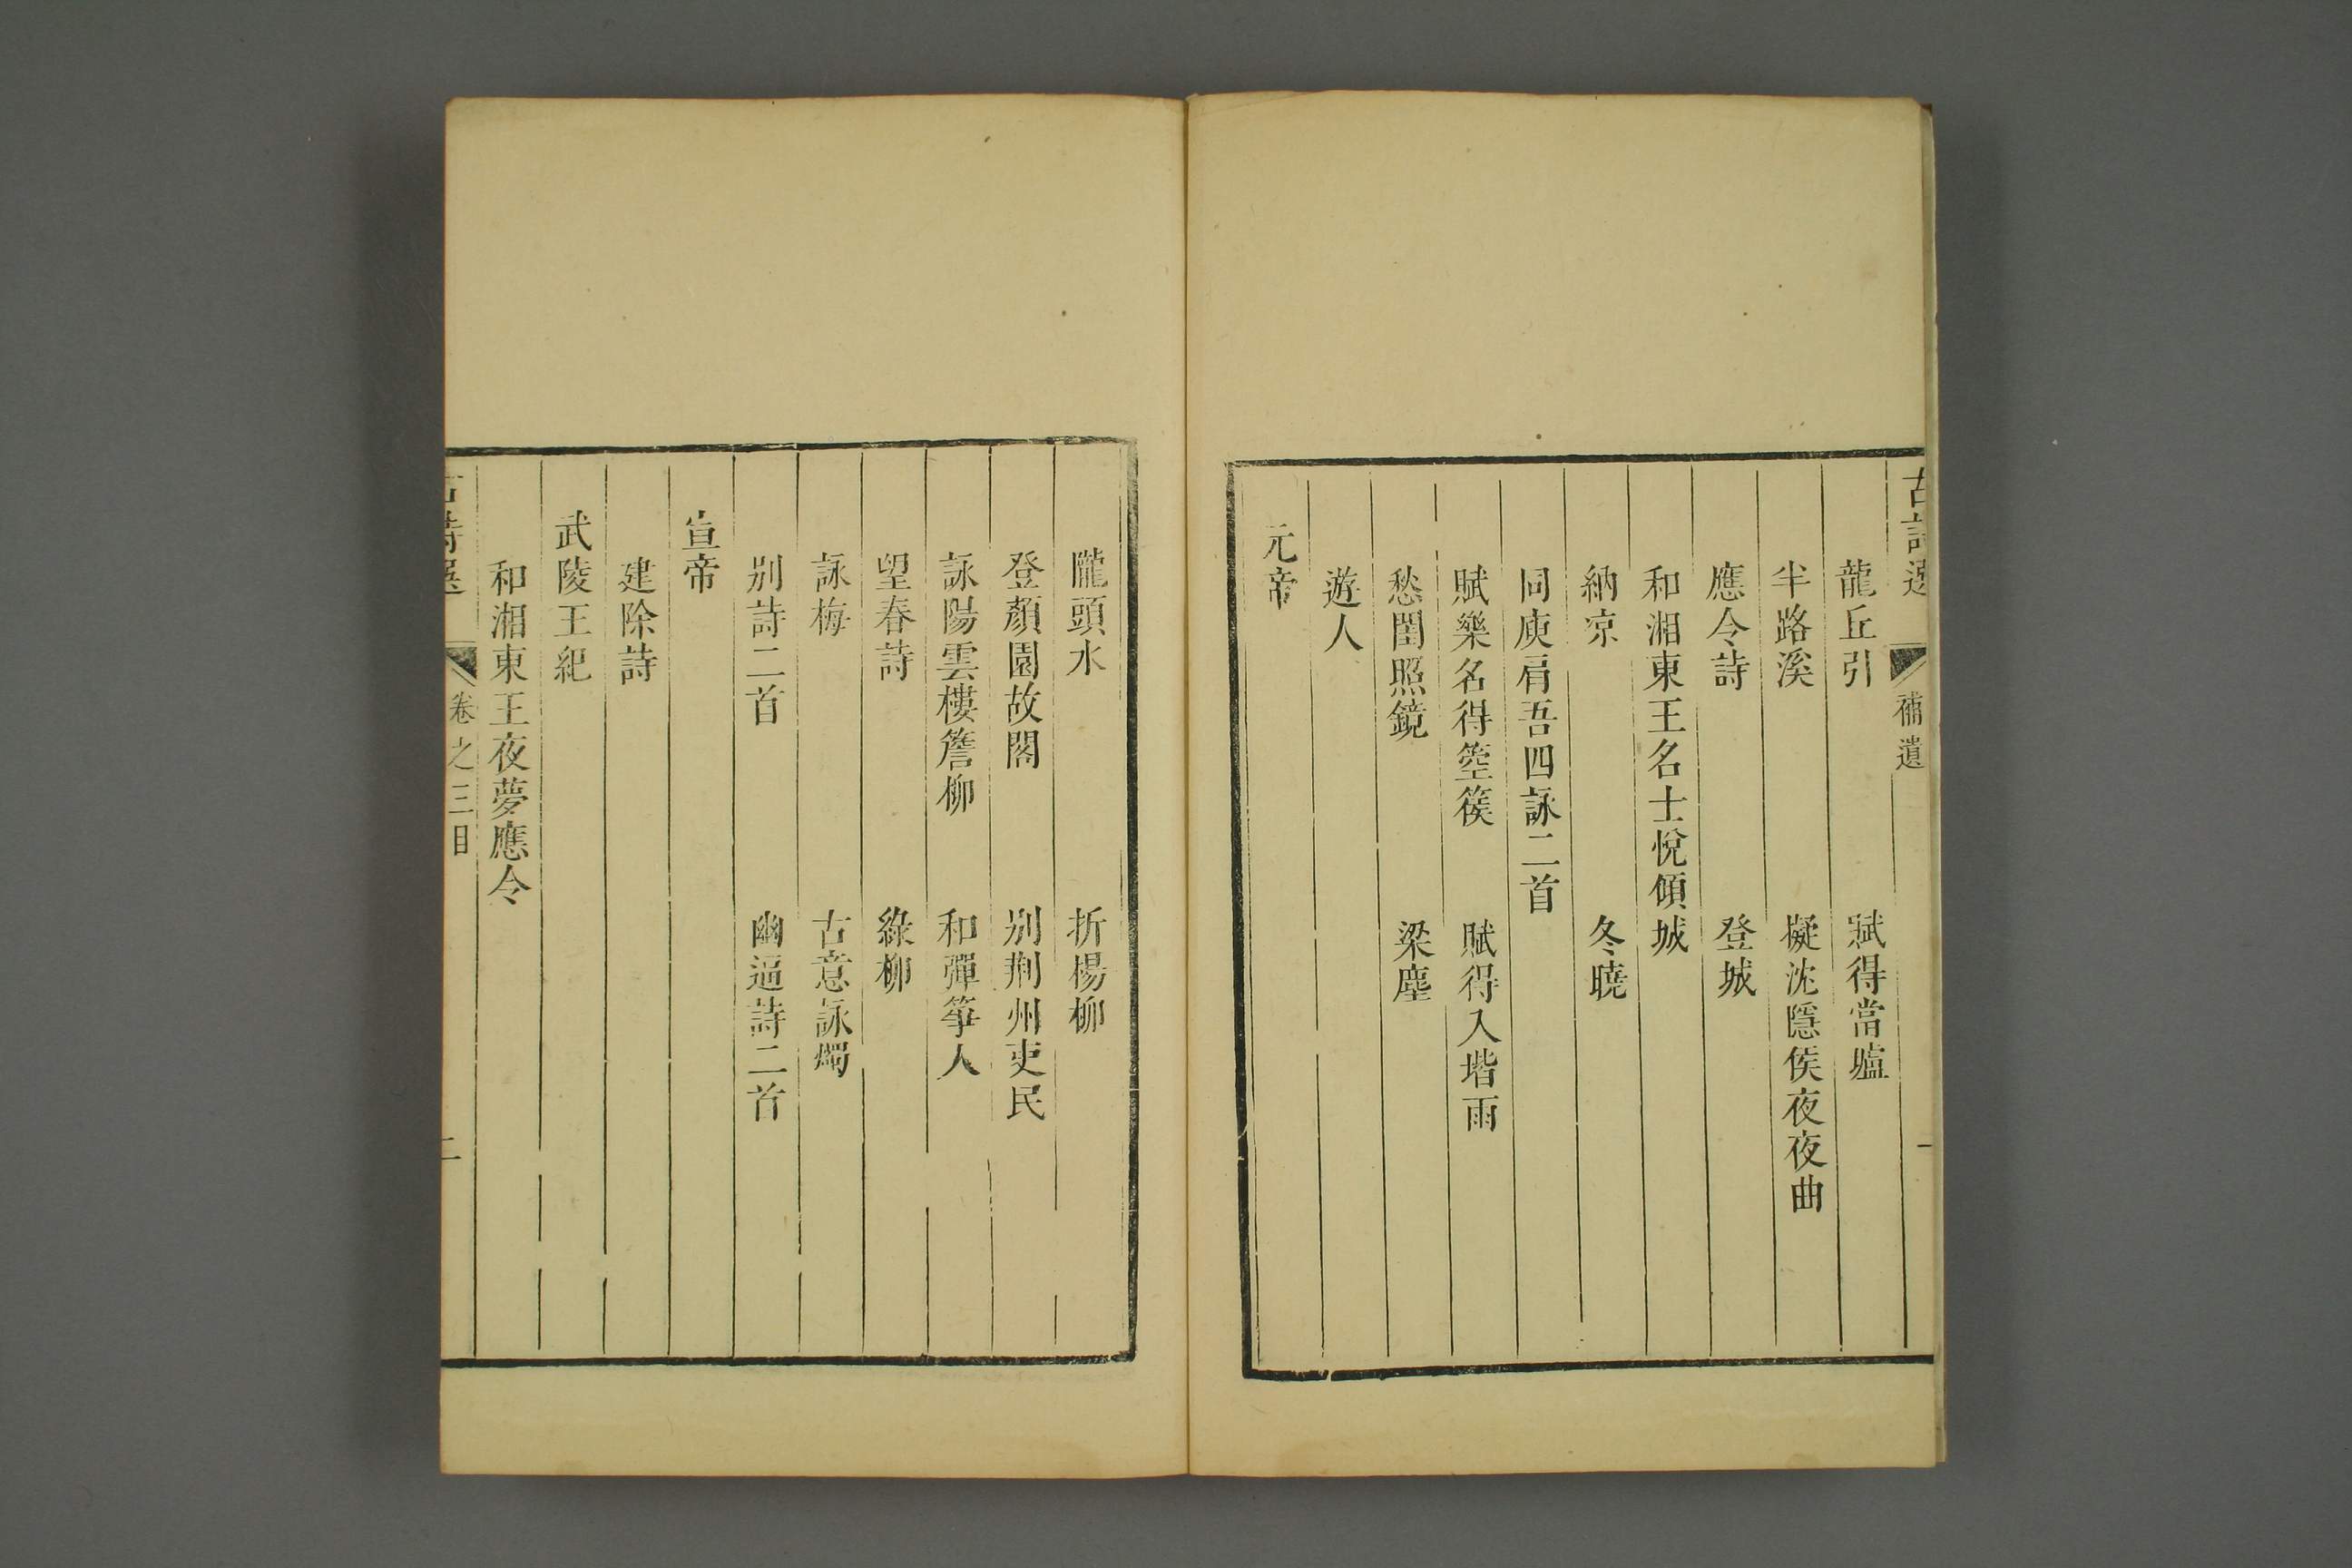 古詩選 補遺 一
龍丘引 賦得當壚
半路溪 擬沈隱侯夜夜曲
應令詩 登城
和湘東王名士悅傾城
納涼 冬曉
同庾肩吾四詠二首
賦樂名得箜篌 賦得入堦雨
愁閨照鏡 梁塵
遊人
元帝
隴頭水 折楊柳
登顏園故閣 別荆州吏民
詠陽雲樓簷柳 和彈箏人
望春詩 綠柳
詠梅 古意詠燭
別詩二首 幽逼詩二首
宣帝
建除詩
武陵王紀
和湘東王夜夢應令
古詩選 卷之三目 二